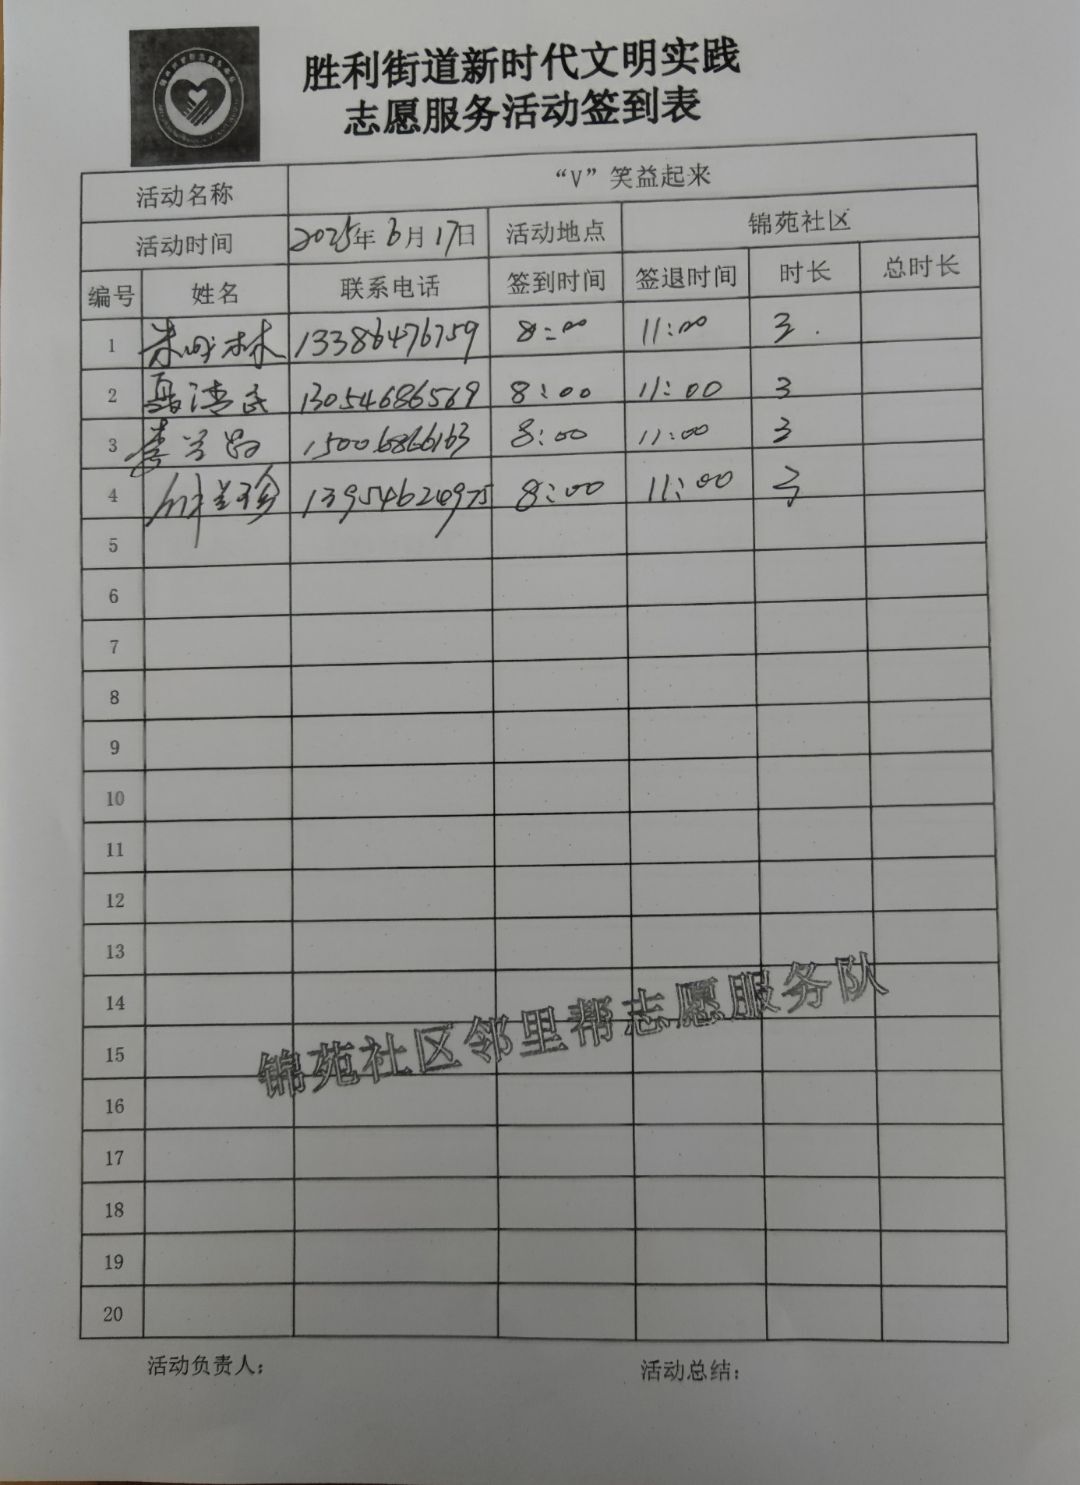 胜利街道新时代文明实践
志愿服务活动签到表
活动名称 “V”笑益起来
活动时间 2025年6月17日 活动地点 锦苑社区
编号 姓名 联系电话 签到时间 签退时间 时长 总时长
1 13386476759 8:00 11:00 3
2 13054686569 8:00 11:00 3
3 15006866163 8:00 11:00 3
4 13954620975 8:00 11:00 3
5
6
7
8
9
10
11
12
13
14
15
16
17
18
19
20
锦苑社区邻里帮志愿服务队
活动负责人: 活动总结: